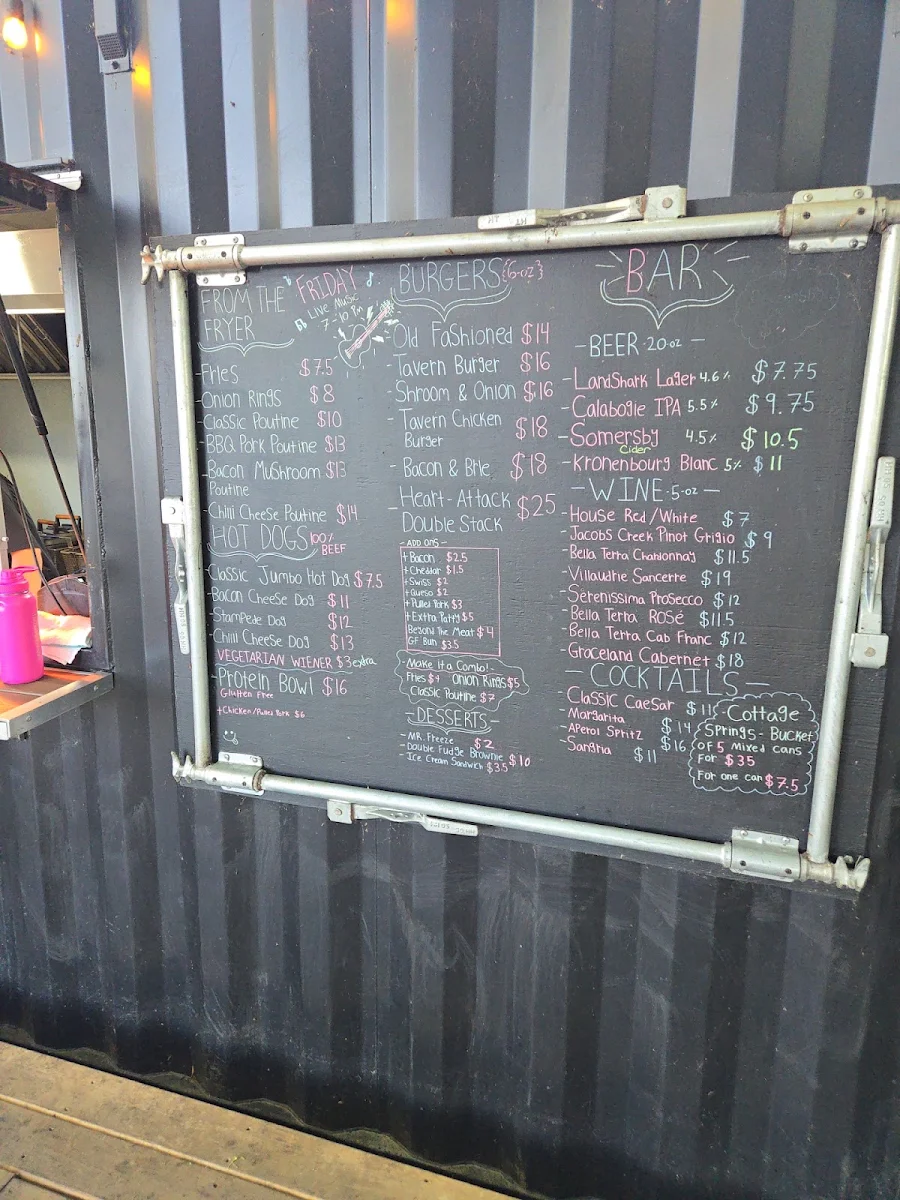 FROM THE
FRYER
FRIDAY
LIVE MUSIC
7-10 PM
-Fries $7.5
-Onion Rings $8
-Classic Poutine $10
-BBQ Pork Poutine $13
-Bacon Mushroom $13
Poutine
-Chili Cheese Poutine $14
HOT DOGS 100%
BEEF
-Classic Jumbo Hot Dog $7.5
-Bacon Cheese Dog $11
-Stampede Dog $12
-Chili Cheese Dog $13
VEGETARIAN WIENER $3 extra
-Protein Bowl $16
Gluten Free
+Chicken/Pulled Pork $6
BURGERS {6-oz}
-Old Fashioned $14
-Tavern Burger $16
-Shroom & Onion $16
-Tavern Chicken
Burger $18
-Bacon & Brie $18
-Heart-Attack $25
Double Stack
-ADD ONS-
+Bacon $2.5
+Cheddar $1.5
+Swiss $2
+Queso $2
+Pulled Pork $3
+Extra Patty $5
Beyond The Meat $4
GF Bun $3.5
-Make It a Combo!-
Fries $4 Onion Rings $5
Classic Poutine $7
-DESSERTS-
-MR. Freeze $2
-Double Fudge Brownie $10
-Ice Cream Sandwich $3.5
BAR
-BEER-20oz-
-LandShark Lager 4.6% $7.75
-Calabogie IPA 5.5% $9.75
-Somersby 4.5% $10.5
Cider
-Krohenbourg Blanc 5% $11
-WINE-5-oz-
-House Red/White $7
-Jacobs Creek Pinot Grigio $9
-Bella Terra Chardonnay $11.5
-Villaudrie Sancerre $19
-Serenissima Prosecco $12
-Bella Terra ROSÉ $11.5
-Bella Terra Cab Franc $12
-Graceland Cabernet $18
-COCKTAILS-
-Classic Caesar $11
-Margarita $14
-Aperol Spritz $16
-Sangria $11
-Cottage
Springs-Bucket
OF 5 Mixed cans
For $35
For one can $7.5